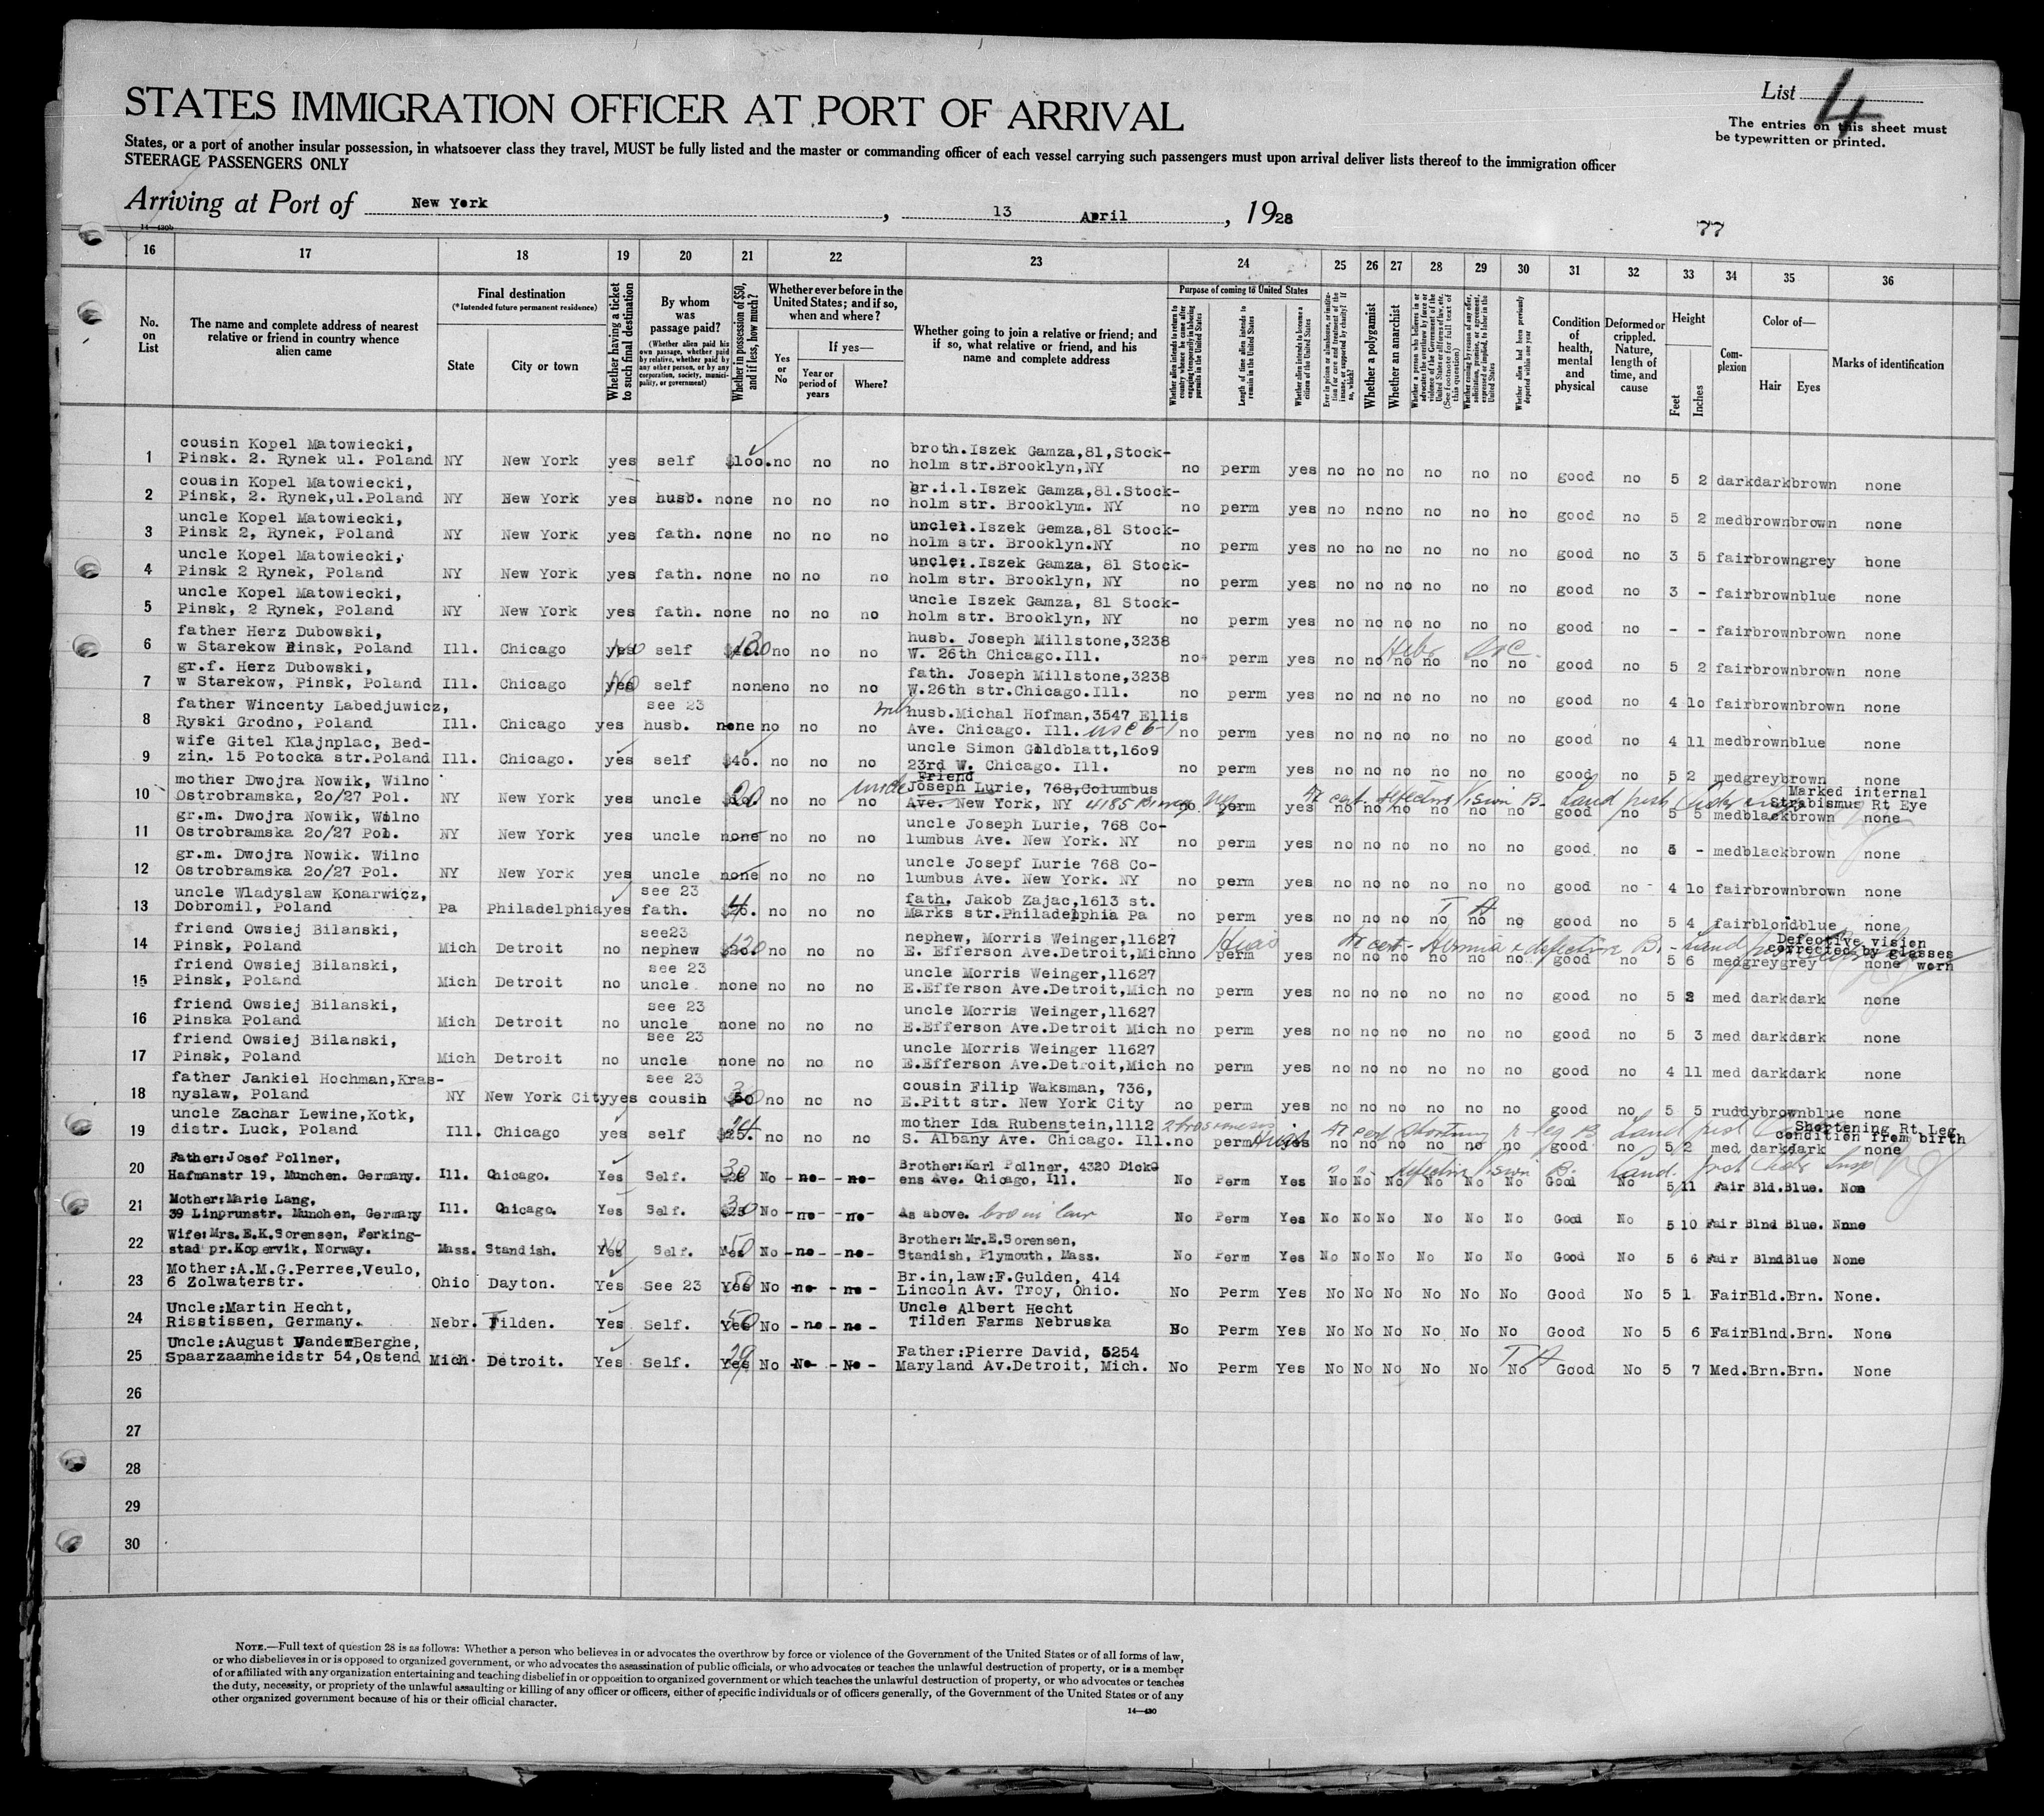 List 4
The entries on this sheet must
be typewritten or printed.
STATES IMMIGRATION OFFICER AT PORT OF ARRIVAL
States, or a port of another insular possession, in whatsoever class they travel, MUST be fully listed and the master or commanding officer of each vessel carrying such passengers must upon arrival deliver lists thereof to the immigration officer
STEERAGE PASSENGERS ONLY
Arriving at Port of New York, 13 April, 1928
14—430b
77
16 17 18 19 20 21 22 23 24 25 26 27 28 29 30 31 32 33 34 35 36
No. on List
The name and complete address of nearest relative or friend in country whence alien came
Final destination
(*Intended future permanent residence)
State
City or town
Whether having a ticket to such final destination
By whom was passage paid?
(Whether alien paid his own passage, whether paid by relative, whether paid by any other person, or by any corporation, society, municipality, or government)
Whether in possession of $50, and if less, how much?
Whether ever before in the United States; and if so, when and where?
Yes or No
If yes—
Year or period of years
Where?
Whether going to join a relative or friend; and if so, what relative or friend, and his name and complete address
Purpose of coming to United States
Length of time alien intends to remain in the United States
Whether alien intends to become a citizen of the United States
Whether a polygamist
Whether an anarchist
Condition of health, mental and physical
Deformed or crippled. Nature, length of time, and cause
Height
Feet
Inches
Complexion
Color of—
Hair
Eyes
Marks of identification
1 cousin Kopel Matowiecki,
Pinsk. 2. Rynek ul. Poland NY New York yes self $100. no no no broth.Iszek Gamza,81,Stock-
holm str.Brooklyn,NY no perm yes no no no no no no good no 5 2 dark dark brown none
2 cousin Kopel Matowiecki,
Pinsk, 2. Rynek,ul.Poland NY New York yes husb. none no no no gr.i.l.Iszek Gamza,81.Stock-
holm str. Brooklym. NY no perm yes no no no no no no good no 5 2 med brown brown none
3 uncle Kopel Matowiecki,
Pinsk 2, Rynek, Poland NY New York yes fath. none no no no unclei.Iszek Gemza,81 Stock-
holm str. Brooklyn.NY no perm yes no no no no no no good no 3 5 fair brown grey hone
4 uncle Kopel Matowiecki,
Pinsk 2 Rynek, Poland NY New York yes fath. none no no no uncle:.Iszek Gamza, 81 Stock-
holm str. Brooklyn, NY no perm yes no no no no no no good no 3 - fair brown blue none
5 uncle Kopel Matowiecki,
Pinsk, 2 Rynek, Poland NY New York yes fath. none no no no uncle Iszek Gamza, 81 Stock-
holm str. Brooklyn, NY no perm yes no no no no no no good no - - fair brown brown none
6 father Herz Dubowski,
w Starekow Pinsk, Poland Ill. Chicago yes no self 120 no no no husb. Joseph Millstone,3238
W. 26th Chicago.Ill. no perm yes no no no no no no good no 5 2 fair brown brown none
7 gr.f. Herz Dubowski,
w Starekow, Pinsk, Poland Ill. Chicago yes no self none no no no fath. Joseph Millstone,3238
W.26th str.Chicago.Ill. no perm yes no no no no no no good no 4 10 fair brown brown none
8 father Wincenty Labedjuwicz,
Ryski Grodno, Poland Ill. Chicago yes see 23 husb. none no no no husb.Michal Hofman,3547 Ellis
Ave. Chicago. Ill. no perm yes no no no no no no good no 4 11 med brown blue none
9 wife Gitel Klajnplac, Bed-
zin. 15 Potocka str.Poland Ill. Chicago. yes self $40. no no no uncle Simon Goldblatt,1609
23rd W. Chicago. Ill. no perm yes no no no no no no good no 5 2 med grey brown none
10 mother Dwojra Nowik, Wilno
Ostrobramska, 20/27 Pol. NY New York yes uncle 20 no no no uncle Friend
Joseph Lurie, 768,Columbus
Ave. New York, NY 4185 no perm yes no no no no no no good no 5 5 med black brown none
defective vision B- Land
Marked internal
Strabismus Rt Eye
11 gr.m. Dwojra Nowik, Wilno
Ostrobramska 20/27 Pol. NY New York yes uncle none no no no uncle Joseph Lurie, 768 Co-
lumbus Ave. New York. NY no perm yes no no no no no no good no 5 - med black brown none
12 gr.m. Dwojra Nowik. Wilno
Ostrobramska 20/27 Pol. NY New York yes uncle none no no no uncle Josepf Lurie 768 Co-
lumbus Ave. New York. NY no perm yes no no no no no no good no 4 10 fair brown brown none
13 uncle Wladyslaw Konarwicz,
Dobromil, Poland Pa Philadelphia yes see 23 fath. no no no fath. Jakob Zajac,1613 st.
Marks str.Philadelphia Pa no perm yes no no no no no no good no 5 4 fair blond blue none
14 friend Owsiej Bilanski,
Pinsk, Poland Mich Detroit no see23 nephew 120 no no no nephew, Morris Weinger,11627
E. Efferson Ave.Detroit,Mich no perm yes no no no no no no good no 5 6 med grey grey none
Hias cert- Hernia & defective
Defective vision
corrected by glasses
worn
15 friend Owsiej Bilanski,
Pinsk, Poland Mich Detroit no see 23 uncle none no no no uncle Morris Weinger,11627
E.Efferson Ave.Detroit,Mich no perm yes no no no no no no good no 5 2 med dark dark none
16 friend Owsiej Bilanski,
Pinska Poland Mich Detroit no see 23 uncle none no no no uncle Morris Weinger,11627
E.Efferson Ave.Detroit Mich no perm yes no no no no no no good no 5 3 med dark dark none
17 friend Owsiej Bilanski,
Pinsk, Poland Mich Detroit no see 23 uncle none no no no uncle Morris Weinger 11627
E.Efferson Ave.Detroit,Mich no perm yes no no no no no no good no 4 11 med dark dark none
18 father Jankiel Hochman,Kras-
nyslaw, Poland NY New York City yes see 23 cousin 30 no no no cousin Filip Waksman, 736,
E.Pitt str. New York City no perm yes no no no no no no good no 5 5 ruddy brown blue none
19 uncle Zachar Lewine,Kotk,
distr. Luck, Poland Ill. Chicago yes self $25. no no no mother Ida Rubenstein,1112
S. Albany Ave. Chicago. Ill. no perm yes no no no no no no good no 5 2 med dark dark none
Hias cert shortening r leg B Land
Shortening Rt Leg
condition from birth
20 Father:Josef Pollner,
Hafmanstr 19, Munchen. Germany. Ill. Chicago. Yes Self. 30 No -no- -no- Brother:Karl Pollner, 4320 Dick
ens Ave. Chicago, Ill. No Perm Yes No No No No No No Good No 5 11 Fair Bld. Blue. None
defective vision B. Land.
21 Mother:Marie Lang,
39 Linprunstr. Munchen, Germany Ill. Chicago. Yes Self. 30 No -no- -no- As above. bro in law No Perm Yes No No No No No No Good No 5 10 Fair Blnd Blue. None
22 Wife:Mrs.E.K.Sorensen, Ferking-
stad pr.Kopervik, Norway. Mass. Standish. Yes No Self. Yes 50 No -no- -no- Brother:Mr.E.Sorensen,
Standish, Plymouth. Mass. No Perm Yes No No No No No No Good No 5 6 Fair Blnd Blue None
23 Mother:A.M.G.Perree,Veulo,
6 Zolwaterstr. Ohio Dayton. Yes See 23 Yes 50 No -no- -no- Br.in,law:F.Gulden, 414
Lincoln Av. Troy, Ohio. No Perm Yes No No No No No No Good No 5 1 Fair Bld. Brn. None.
24 Uncle:Martin Hecht,
Risstissen, Germany. Nebr. Tilden. Yes Self. Yes 50 No -no- -no- Uncle Albert Hecht
Tilden Farms Nebruska No Perm Yes No No No No No No Good No 5 6 Fair Blnd. Brn. None
25 Uncle:August VandenBerghe,
Spaarzaamheidstr 54,Ostend Mich. Detroit. Yes Self. Yes No -No- -No- Father:Pierre David, 5254
Maryland Av.Detroit, Mich. No Perm Yes No No No No No No Good No 5 7 Med. Brn. Brn. None
26
27
28
29
30
NOTE.—Full text of question 28 is as follows: Whether a person who believes in or advocates the overthrow by force or violence of the Government of the United States or of all forms of law,
or who disbelieves in or is opposed to organized government, or who advocates the assassination of public officials, or who advocates or teaches the unlawful destruction of property, or is a member
of or affiliated with any organization entertaining and teaching disbelief in or opposition to organized government or which teaches the unlawful destruction of property, or who advocates or teaches
the duty, necessity, or propriety of the unlawful assaulting or killing of any officer or officers, either of specific individuals or of officers generally, of the Government of the United States or of any
other organized government because of his or their official character.
14—430